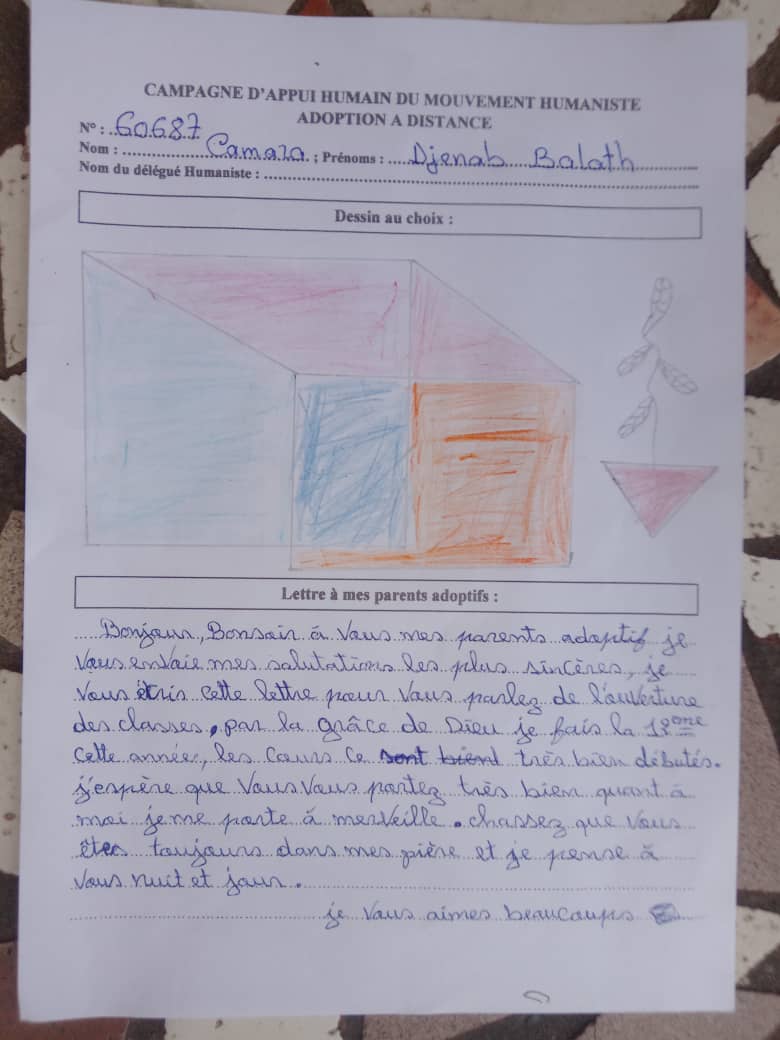 CAMPAGNE D'APPUI HUMAIN DU MOUVEMENT HUMANISTE
ADOPTION A DISTANCE
N° : 60687
Nom : Camara ; Prénoms : Djenab Balath
Nom du délégué Humaniste :
Dessin au choix :
Lettre à mes parents adoptifs :
Bonjour, Bonsoir à Vous mes parents adoptif je
Vous envoie mes salutations les plus sincères, je
Vous écris cette lettre pour Vous parlez de l'ouverture
des classes, par la grâce de Dieu je fais la 12ème
Cette année, les Cours Ce sont bient très bien débutés.
j'espère que Vous Vous portez très bien quant à
moi je me porte à merveille. chassez que Vous
êtes toujours dans mes pière et je pense à
Vous nuit et jour.
je Vous aimes beaucoups